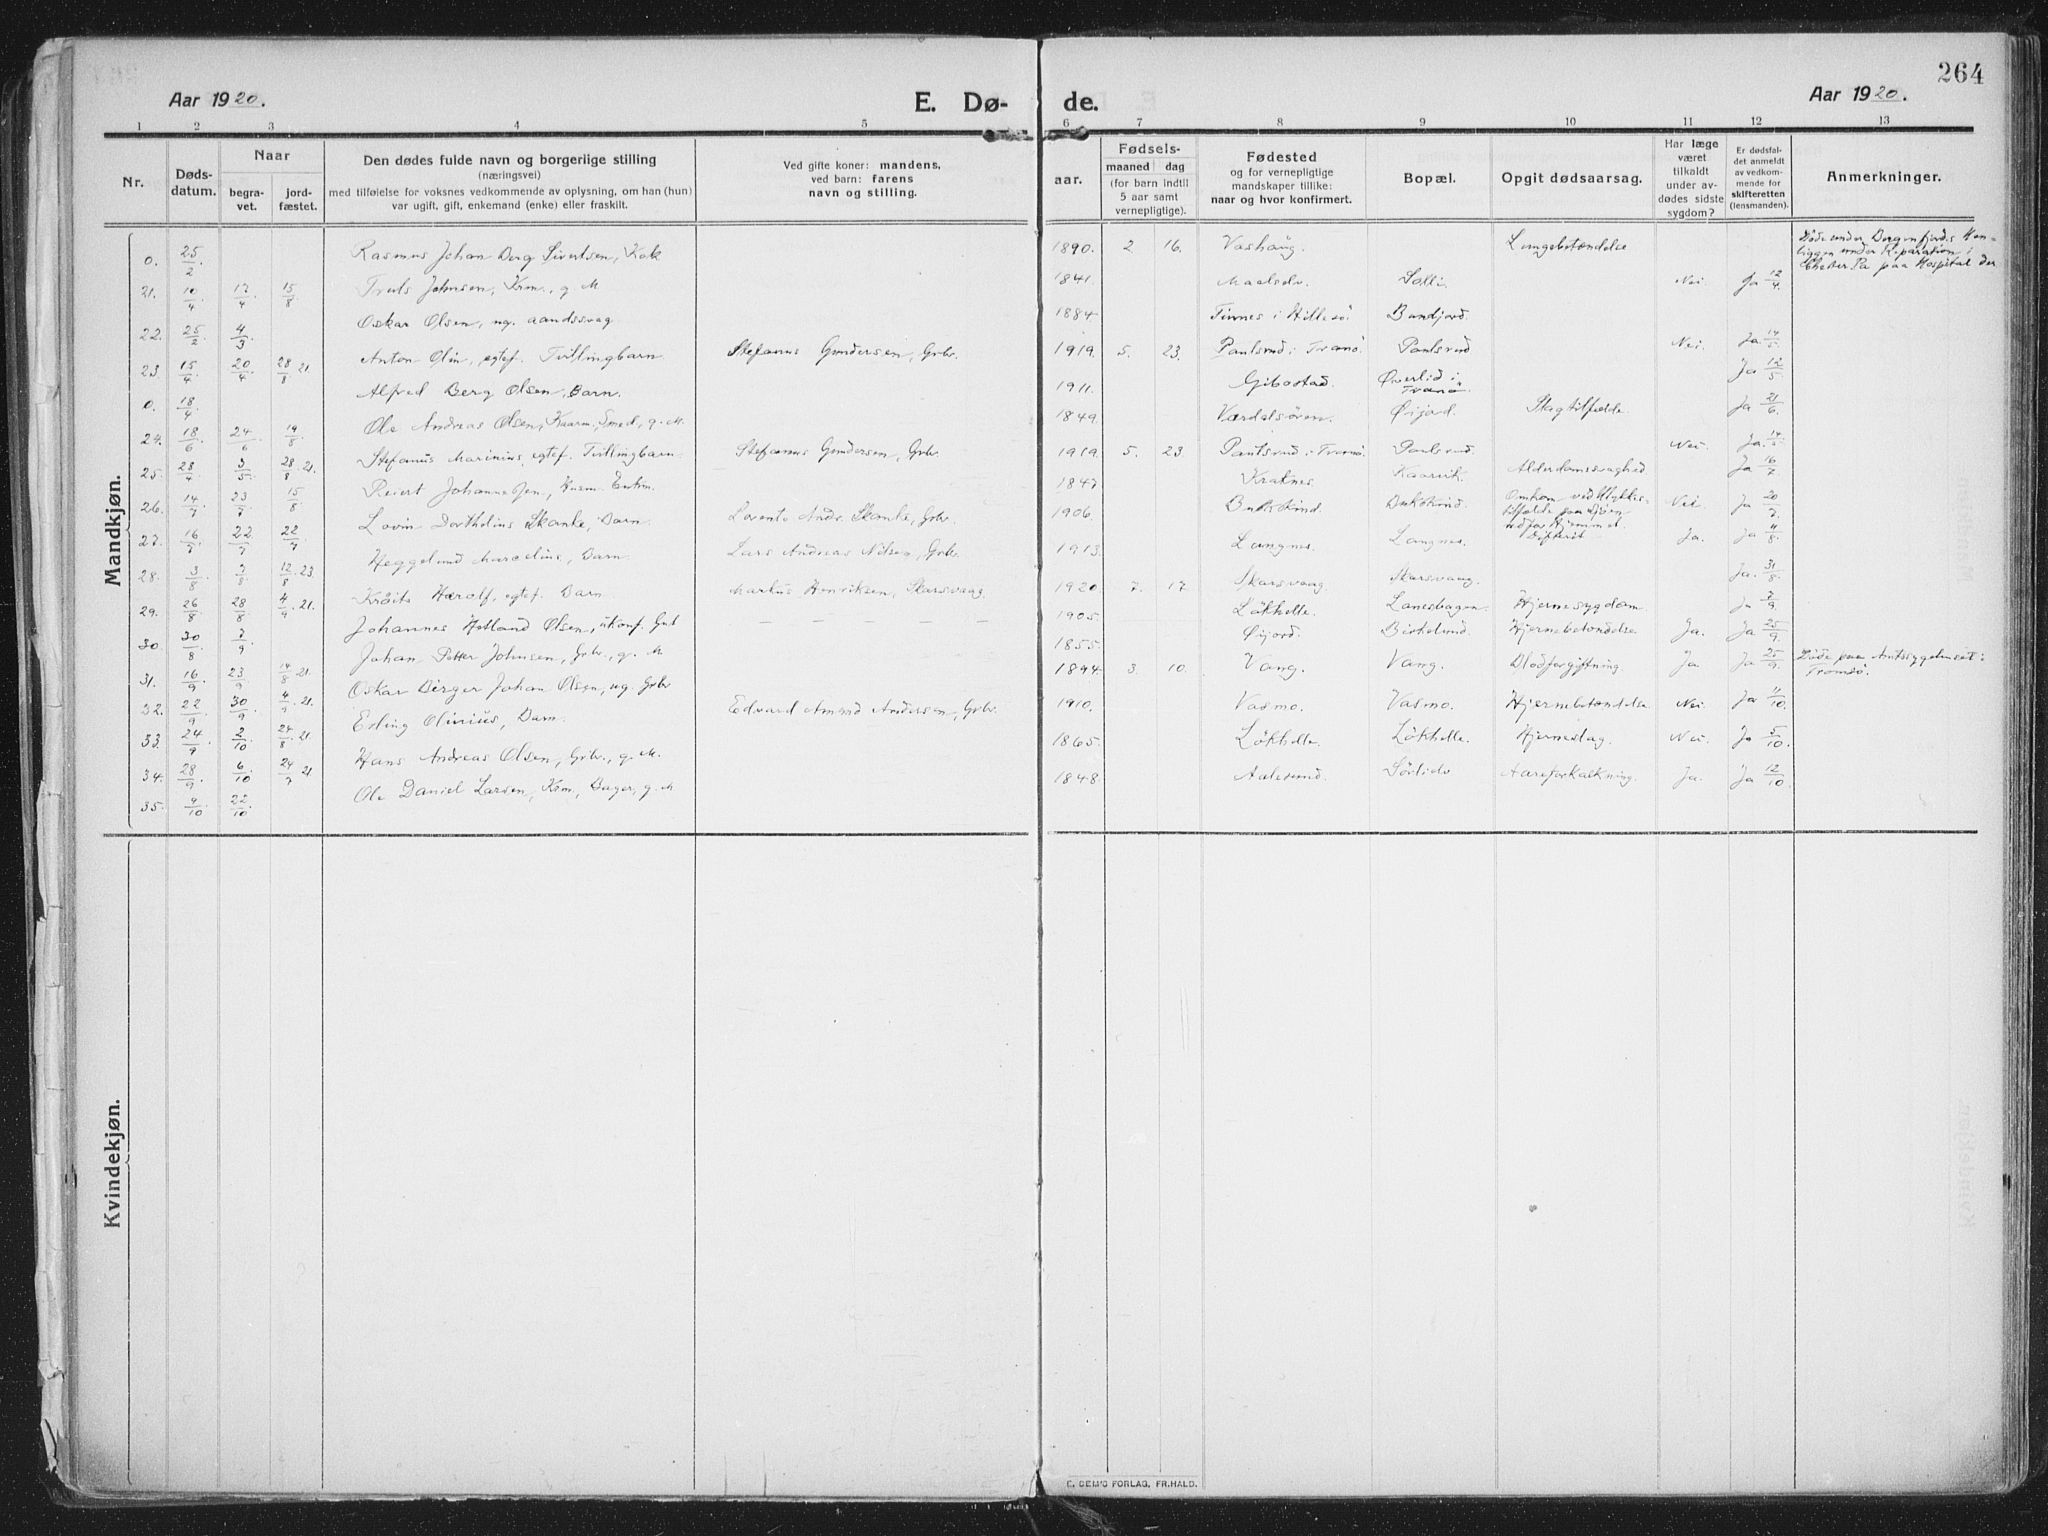 264
Aar 1920.
E. Dø-
de.
Aar 1920.
1 2 3 4 5 6 7 8 9 10 11 12 13
Nr.
Døds-
datum.
Naar
begra-
vet.
jord-
fæstet.
Den dødes fulde navn og borgerlige stilling
(næringsvei)
med tilføielse for voksnes vedkommende av oplysning, om han (hun)
var ugift, gift, enkemand (enke) eller fraskilt.
Ved gifte koner: mandens,
ved barn: farens
navn og stilling.
Fødsels-
aar.
maaned dag
(for barn indtil
5 aar samt
vernepligtige).
Fødested
og for vernepligtige
mandskaper tillike:
naar og hvor konfirmert.
Bopæl.
Opgit dødsaarsag.
Har læge
været
tilkaldt
under av-
dødes sidste
sygdom?
Er dødsfal-
det anmeldt
av vedkom-
mende for
skifteretten
(lensmanden).
Anmerkninger.
Mandkjøn.
0. 25/2. Rasmus Johan Berg Sivertsen, Kok 1890. 2 16. Vashaug. Lungebetændelse Døde under Bergensfjords Hen-
liggen under Reparation i
Chester Pa paa Hospital der
21. 10/4. 17/4 15/8 Truls Johnsen, Krm., g. M 1841. Maalselv. Solli. Nei. Ja 12/4
22. 25/2. 4/3 Oskar Olsen, ug. aandssvag 1884 Finnes i Hillesö. Bondjord.
23. 15/4. 20/4. 28/8 21. Anton Olin, egtef. Tvillingbarn Stefanus Gundersen, Grbr. 1919. 5. 23. Paulsrud i Tranö. Paulsrud Nei. Ja. 14/5.
0. 18/4. Alfred Berg Olsen, Barn. 1911. Gibostad. Överlid i
Tranö Ja 12/5
24. 18/6 24/6 19/8 Ole Andreas Olsen, Kaarm. Smed, g. M. 1849. Værdalsören. Öijord. Slagtilfælde. Ja 21/6.
25. 28/4 3/5. 28/8 21. Stefanus Marinius, egtef. Tvillingbarn Stefanus Gundersen, Grbr. 1919. 5. 23 Paulsrud i Tranö. Paulsrud. Nei Ja. 14/5
26. 14/7 23/7 15/8 Reiert Johannesen, Husm. Enkm. 1847 Kraknes. Kaarvik. Alderdomssvaghed Ja 16/7
27. 16/7 22/7 22/7 Lovin Dorthelius Skanke, Barn. Lorents Andr. Skanke, Grbr. 1906. Bukskind. Bukskind. Omkom ved Ulykkes-
tilfælde paa Sjöen
udfor Hjemmet. Nei. Ja 20/7
28. 3/8 7/8. 12/8. 23. Heggelund Marcelius, Barn. Lars Andreas Nilsen, Grbr. 1913. Langnes. Langnes. Difterit Ja. Ja 11/8.
29. 26/8 28/8 4/9. 21. Kråits Harolf, egtef. Barn. Markus Henriksen, Skarsvaag 1920. 7. 17 Skarsvaag Skarsvaag. Ja. 31/8.
30. 30/8 7/9. Johannes Hetland Olsen, ukonf. Gut – – – – – – 1905. Lökhelle. Lanesbogen. Hjernesygdom Ja 7/9
31. 16/9 23/9 14/8 21. Johan Petter Johnsen, Grbr., g. M 1855. Öijord. Birkelund. Hjernebetændelse Ja. Ja 25/9.
32. 22/9 30/9. 4/9. 21. Oskar Birger Johan Olsen, ug. Grbr 1894 3. 10. Vang. Vang. Blodforgiftning. Ja Ja 25/9. Döde paa Amtssygehuset i
Tromsö.
33. 24/9 2/10. 24/8. 21. Erling Olinius, Barn. Edvard Amand Andersen, Grbr. 1910. Vasmo. Vasmo. Hjernebetændelse Nei. Ja 11/10.
34. 28/9. 6/10 24/7 21 Hans Andreas Olsen, Grbr., g. M. 1865. Lökhelle. Lökhelle. Hjerneslag. Nei. Ja 5/10.
35. 9/10 22/10. Ole Daniel Larsen, Krm, Bager, g. M 1848 Aalesund. Sörlielv Aareforkalkning. Ja. Ja 12/10.
Kvindekjøn.
E. SEM'S FORLAG, FR.HALD.